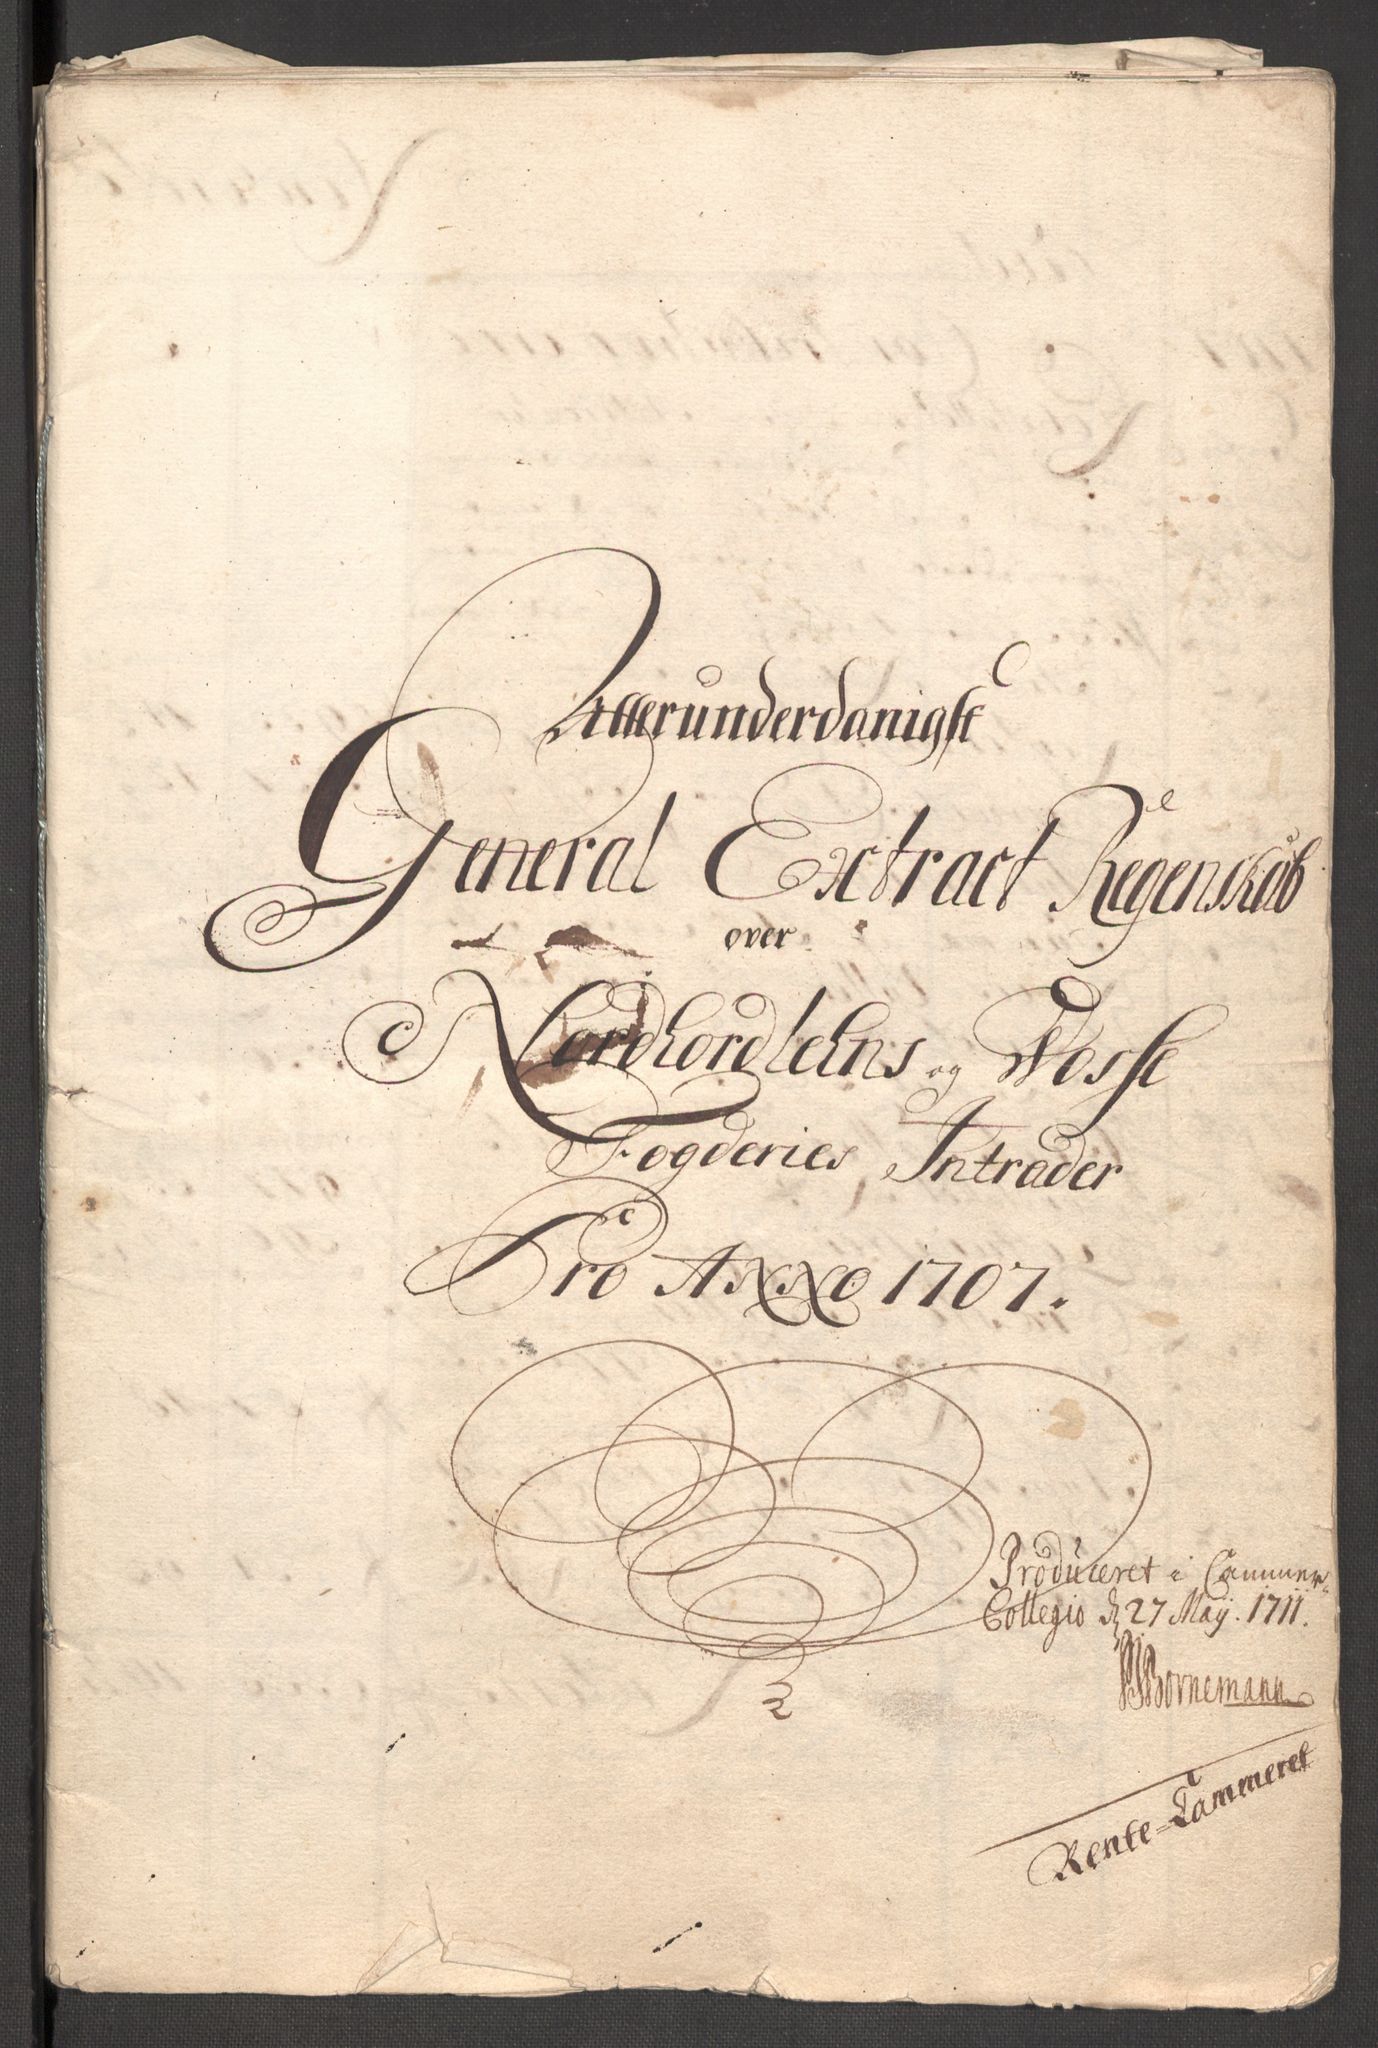 Allerunderdanigste
General Extract Regenskab
over
Nordhordlehns og Wosse
Fogderies Intrader
Pro Anno 1707.
Produceret i Cammer-
Collegio d 27 Maij. 1711.
Bornemann
Rente-Cammeret